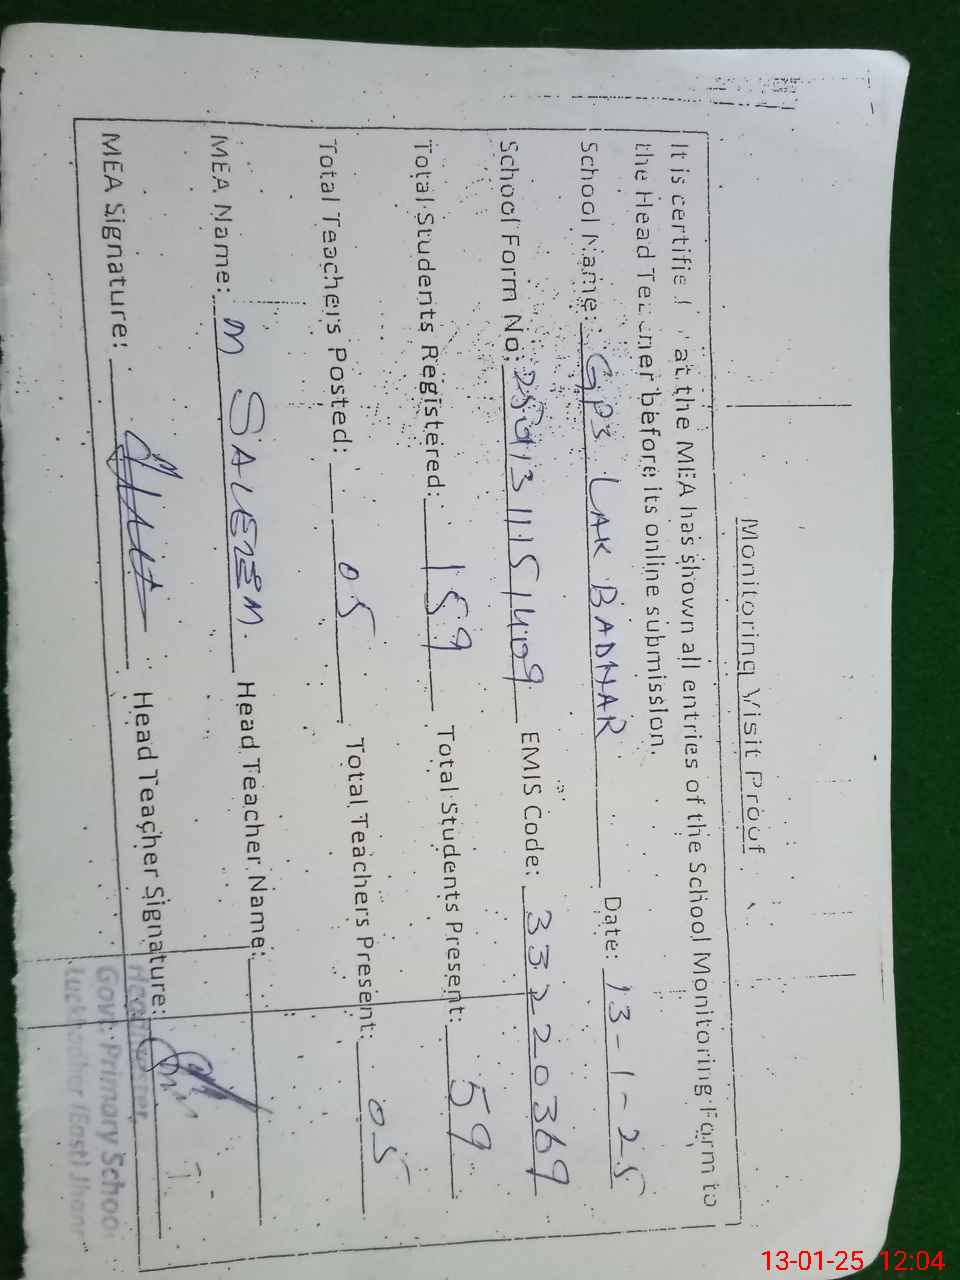 Monitoring Visit Proof
It is certified that the MEA has shown all entries of the School Monitoring Form to
the Head Teacher before its online submission.
School Name: GPS LAK BADHAR Date: 13-1-25
School Form No: EMIS Code: 33220369
Total Students Registered: 159 Total Students Present: 59
Total Teachers Posted: 05 Total Teachers Present: 05
MEA Name: M SALEEM. Head Teacher Name:
MEA Signature: Head Teacher Signature:
Headmaster
Govt: Primary School
Luckbadher (East)
13-01-25 12:04